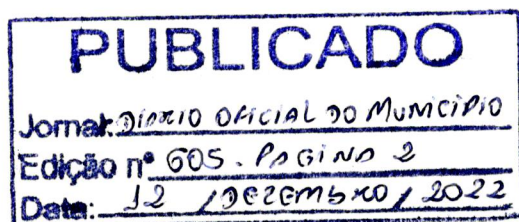 PUBLICADO
Jornal: DIÁRIO OFICIAL DO MUNICÍPIO
Edição nº 605. PAGINA 2
Data: 12 / DEZEMBRO / 2022